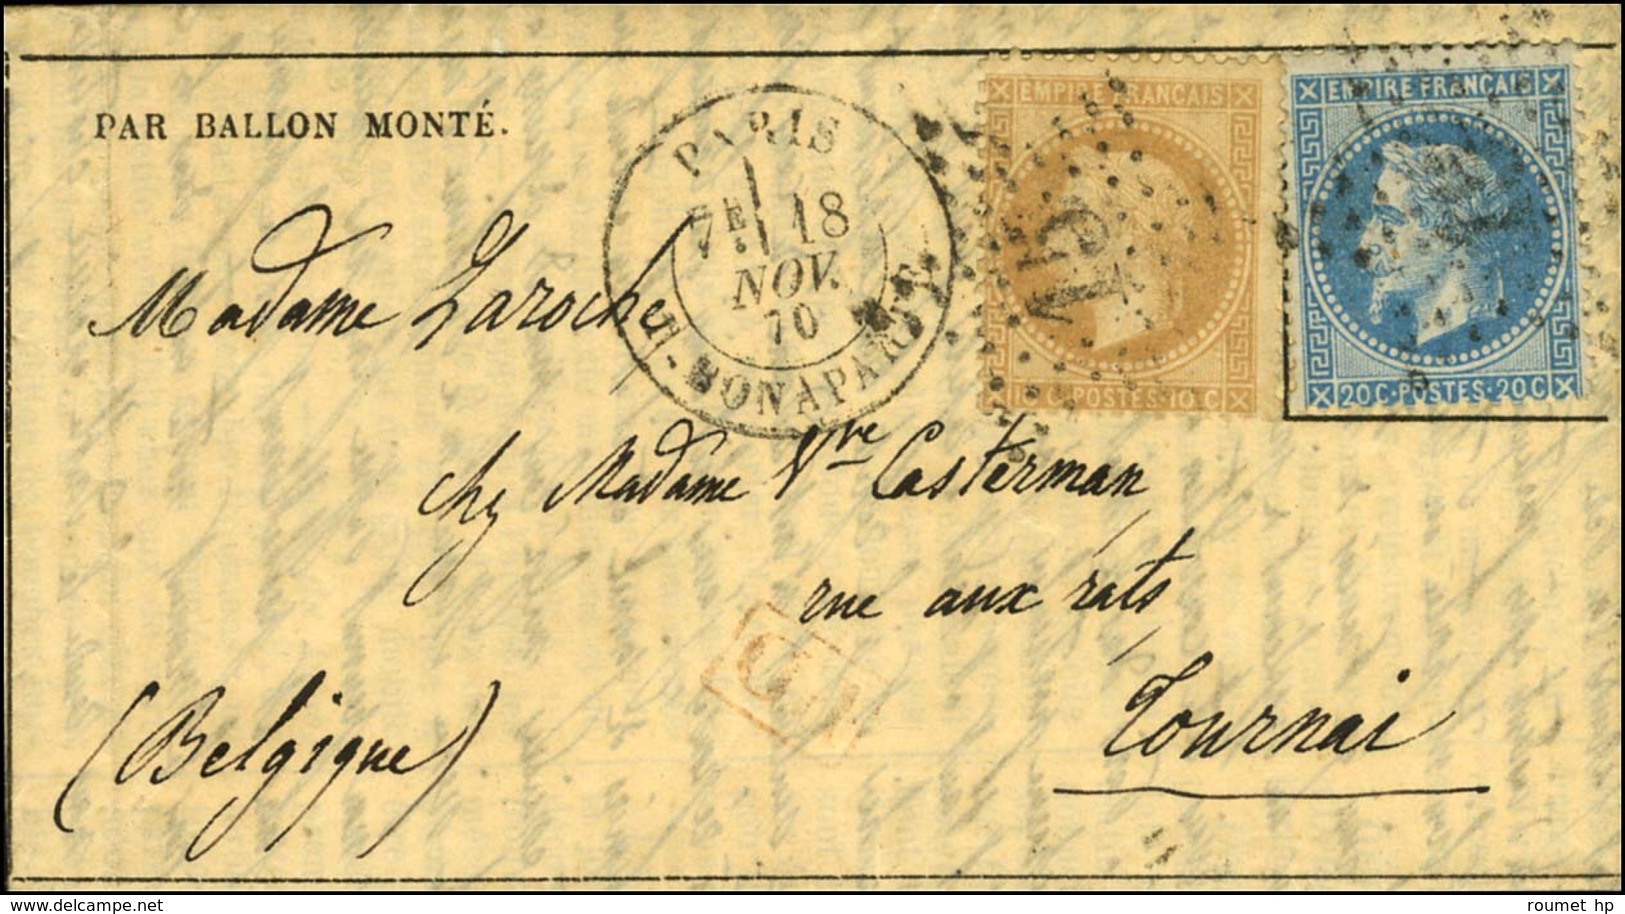 PAR BALLON MONTÉ.
PARIS
7E 18
NOV.
70
R-BONAPARTE
EMPIRE FRANCAIS
15
10 C·POSTES·10 C
EMPIRE FRANCAIS
20 C·POSTES·20 C
Madame Laroche
chez Madame Vve Casterman
rue aux rats
Tournai
(Belgique)
roumet hp